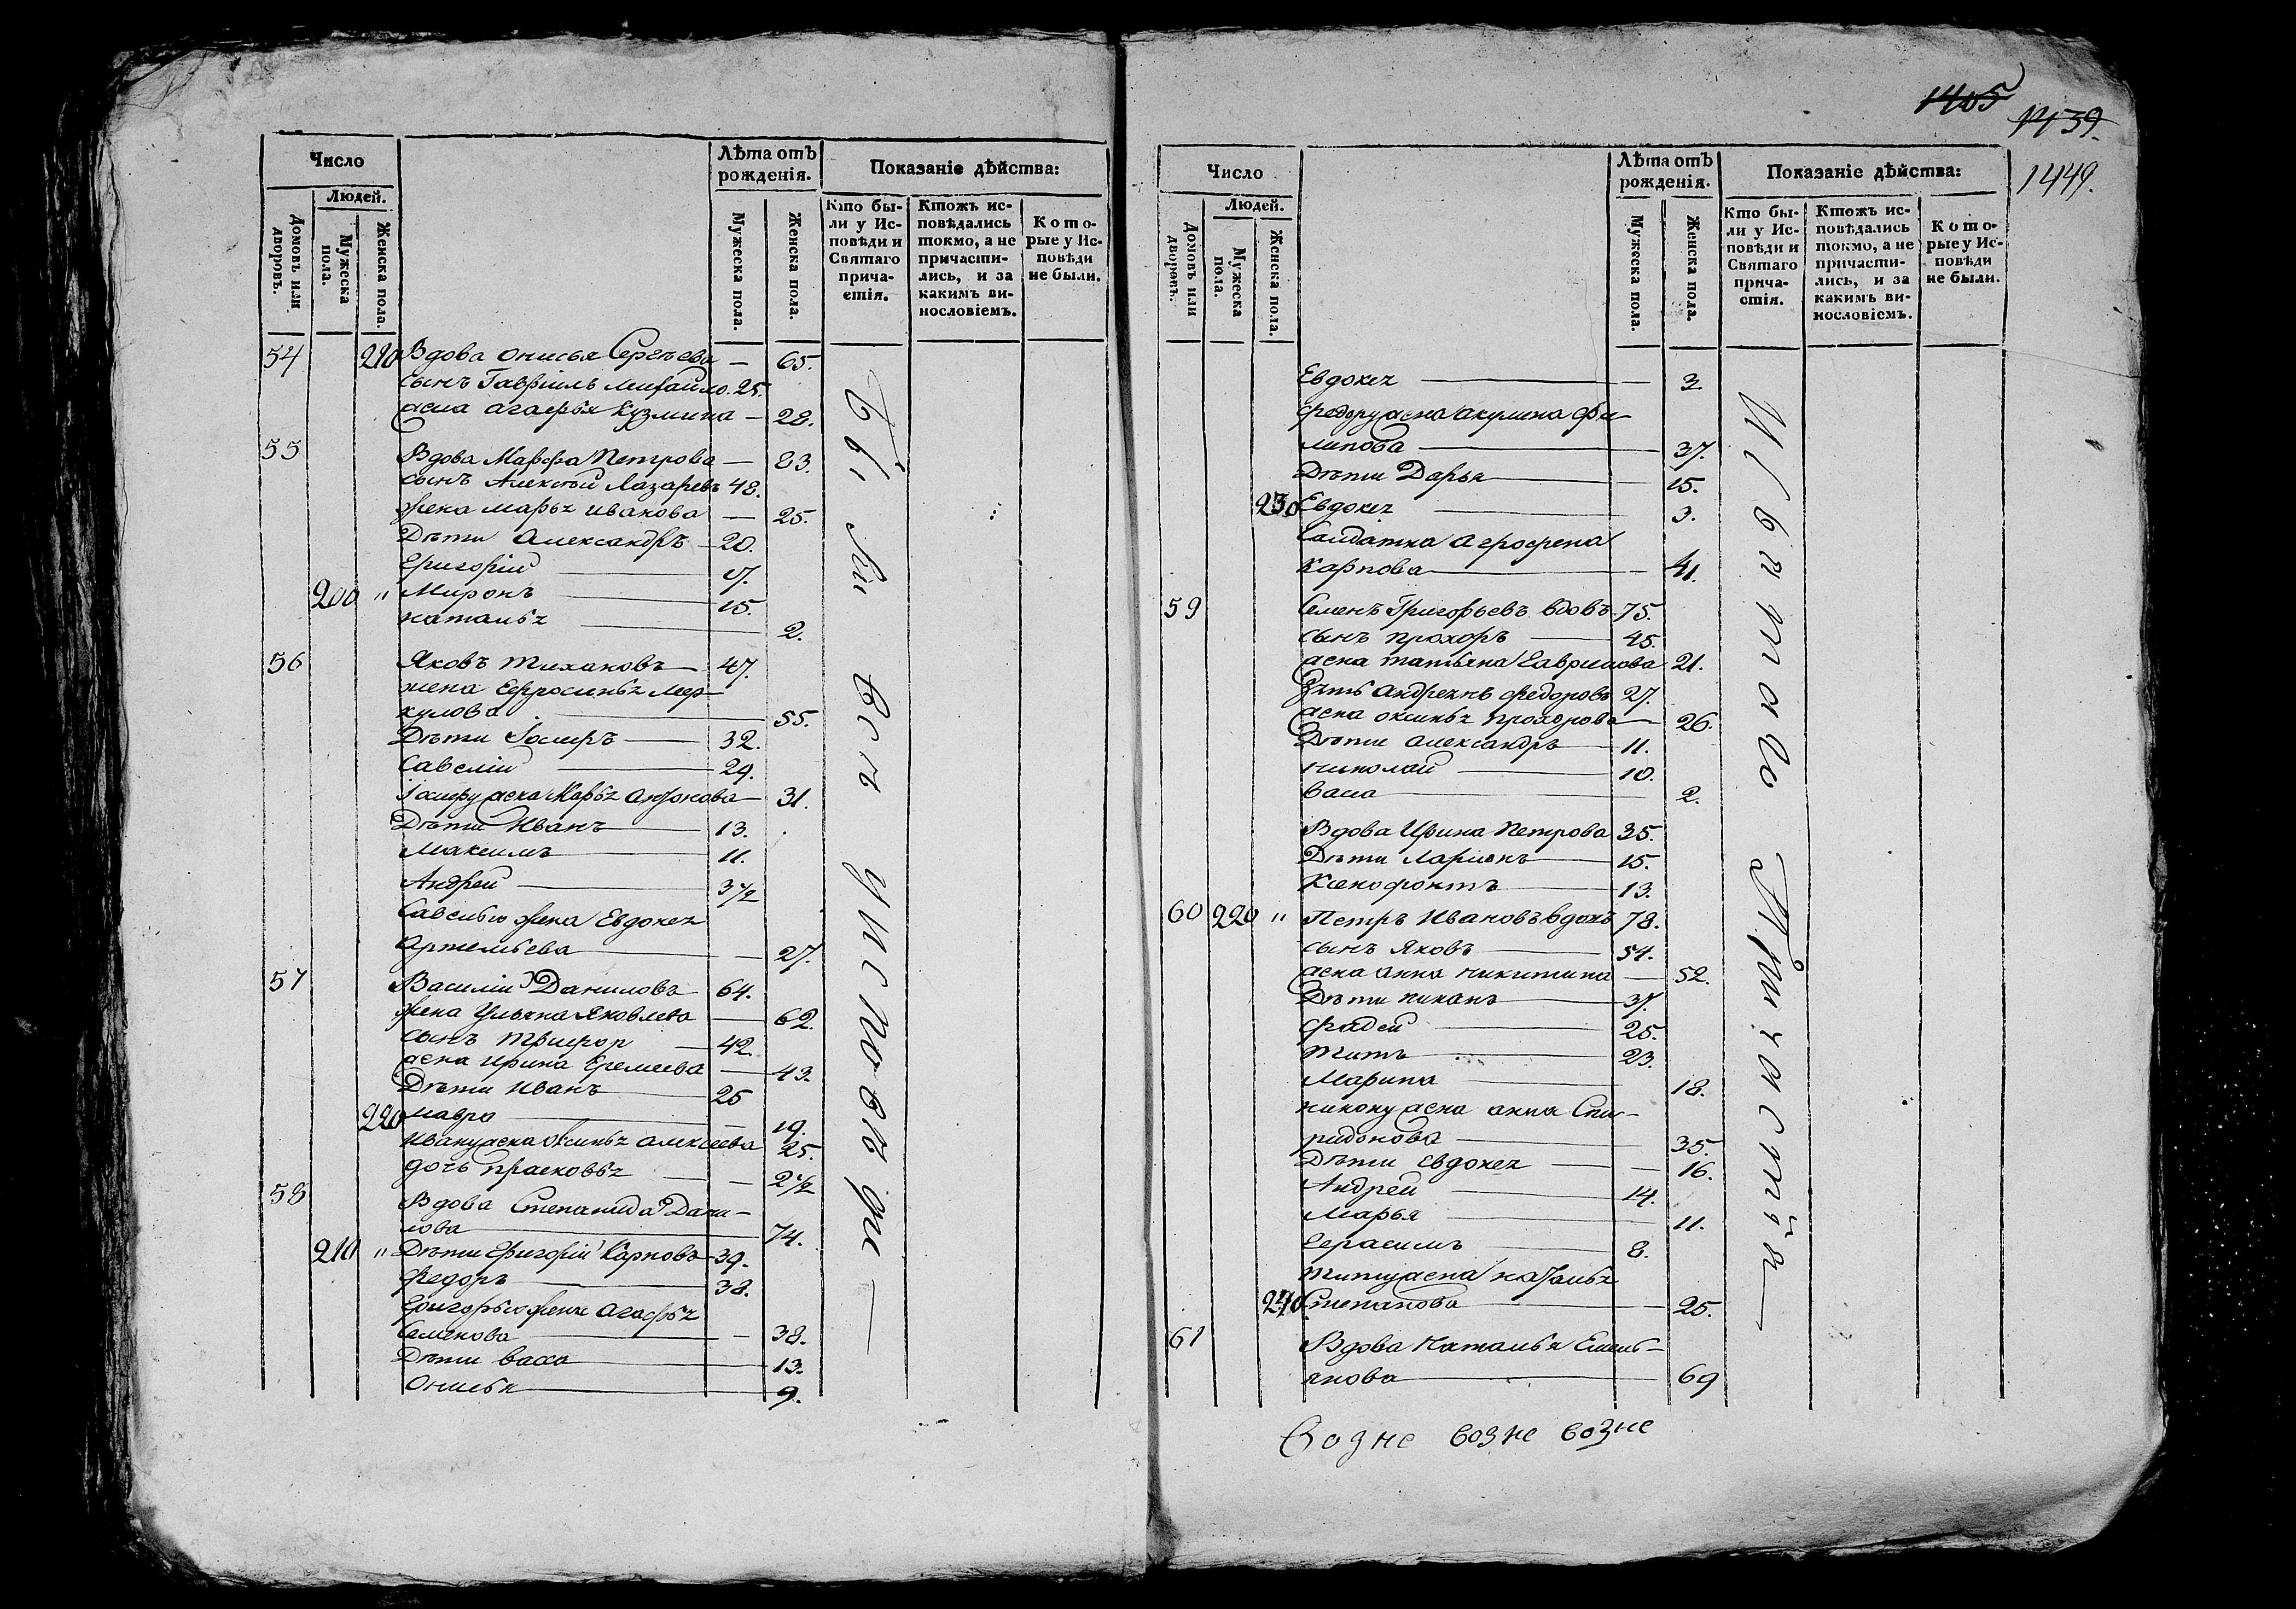 Число
Людей.
Домовъ или дворовъ.
Мужеска пола.
Женска пола.
Лѣта отъ рожденія.
Мужеска пола.
Женска пола.
Показаніе дѣйства:
Кто бы-
ли у Ис-
повѣди и
Святаго
прича-
стія.
Ктожъ ис-
повѣдались
токмо, а не
причасти-
лись, и за
какимъ ви-
нословіемъ.
Кото-
рые у Ис-
повѣди
не были.
54 210 Вдова Онисья Сергѣева — 65.
сынъ Гавріилъ Михайло. 25.
жена Агафья Кузмина — 28.
55 Вдова Марфа Петрова — 83.
сынъ Алексѣй Лазаревъ 48.
жена Марья Иванова — 25.
Дѣти Александръ — 20.
Григорій 17.
200 " Миронъ 15.
Наталья 2.
56 Яковъ Тихановъ 47.
жена Ефросинья Мер-
кулова 55.
Дѣти Іосифъ 32.
Савелій 29.
Іосифу жена Марья Антонова 31.
Дѣти Иванъ 13.
Максимъ 11.
Андрей 3 1/2
Савелью жена Евдокея
Артемьева 27.
57 Василій Даниловъ 64.
жена Ульяна Яковлева 62.
сынъ Трифон 42.
жена Ирина Еремеева 43.
Дѣти Иванъ 25
220 Мавра 19.
Ивану жена Оксинья Алексеева 25.
дочь Прасковья 2 1/2
58 Вдова Степанида Дани-
лова 74.
210 " Дѣти Григорій Карповъ 39.
Федоръ 38.
Григорью жена Агафья
Семенова 38.
Дѣти Васса 13.
Онисья 9.
Бы ли Всѣ у исповѣди —
1405
1439.
1449.
Число
Людей.
Домовъ или дворовъ.
Мужеска пола.
Женска пола.
Лѣта отъ рожденія.
Мужеска пола.
Женска пола.
Показаніе дѣйства:
Кто бы-
ли у Ис-
повѣди и
Святаго
прича-
стія.
Ктожъ ис-
повѣдались
токмо, а не
причасти-
лись, и за
какимъ ви-
нословіемъ.
Кото-
рые у Ис-
повѣди
не были.
Евдокея 3
Федору жена Акулина Фи-
липова 37.
Дѣти Дарья 15.
230 Евдокея 3.
Салдатка Агрофена
Карпова 41.
59 Семенъ Григорьевъ вдовъ 75.
сынъ Прохоръ 45.
жена Татьяна Гаврилова 21.
Зять Андреянъ Федоровъ 27.
жена Оксинья Прохорова 26.
Дѣти Александръ 11.
Николай 10.
Васа 2.
Вдова Ирина Петрова 35.
Дѣти Ларионъ 15.
Ксенофонтъ 13.
60 220 " Петръ Ивановъ вдовъ 78.
сынъ Яковъ 54.
жена Анна Никитина 52.
Дѣти Никанъ 37.
Фадей 25.
Титъ 23.
Марина 18.
Никону жена Анна Спи-
ридонова 35.
Дѣти Евдокея 16.
Андрей 14.
Марья 11.
Герасимъ 8.
Титу жена Наталья
240 Степанова 25.
61 Вдова Наталья Емель-
янова 69
И Святаго Причастія —
Возне возне возне